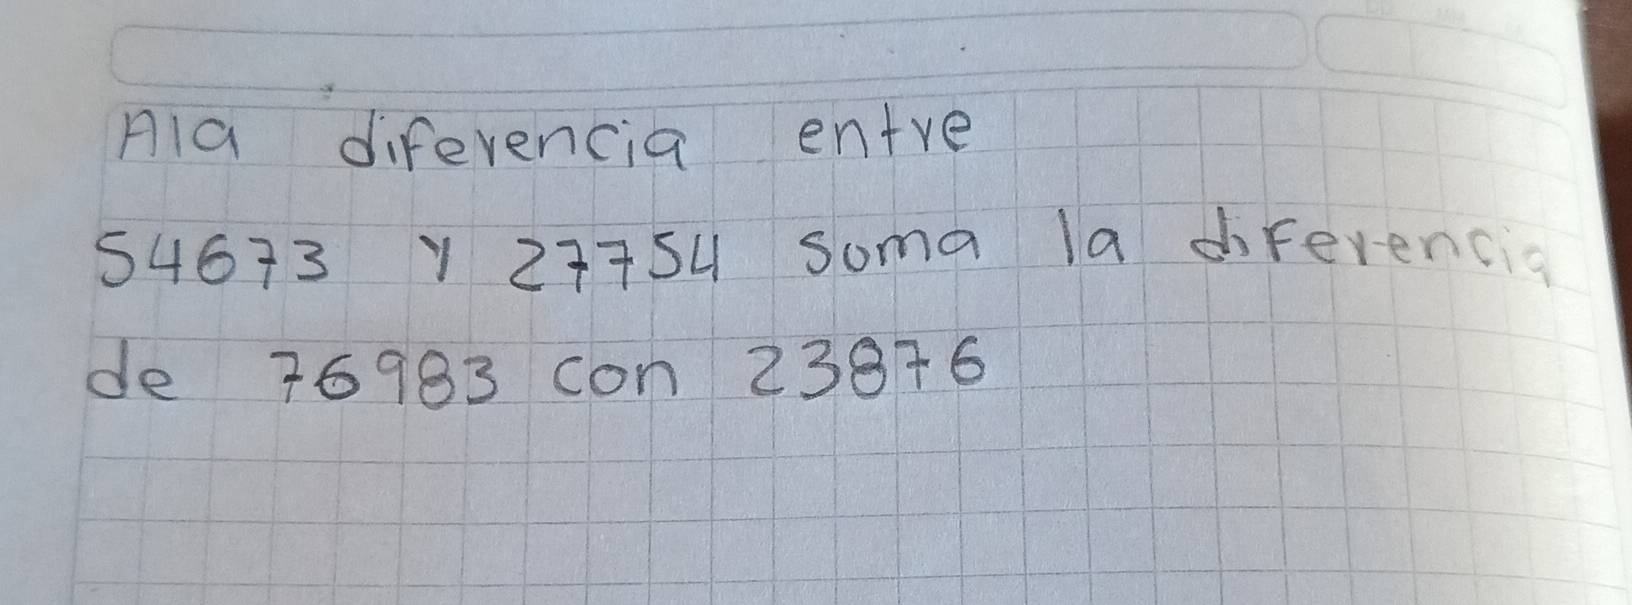 Ala diferencia entre
54673 y 27754 suma la diferencia
de 76983 con 23876